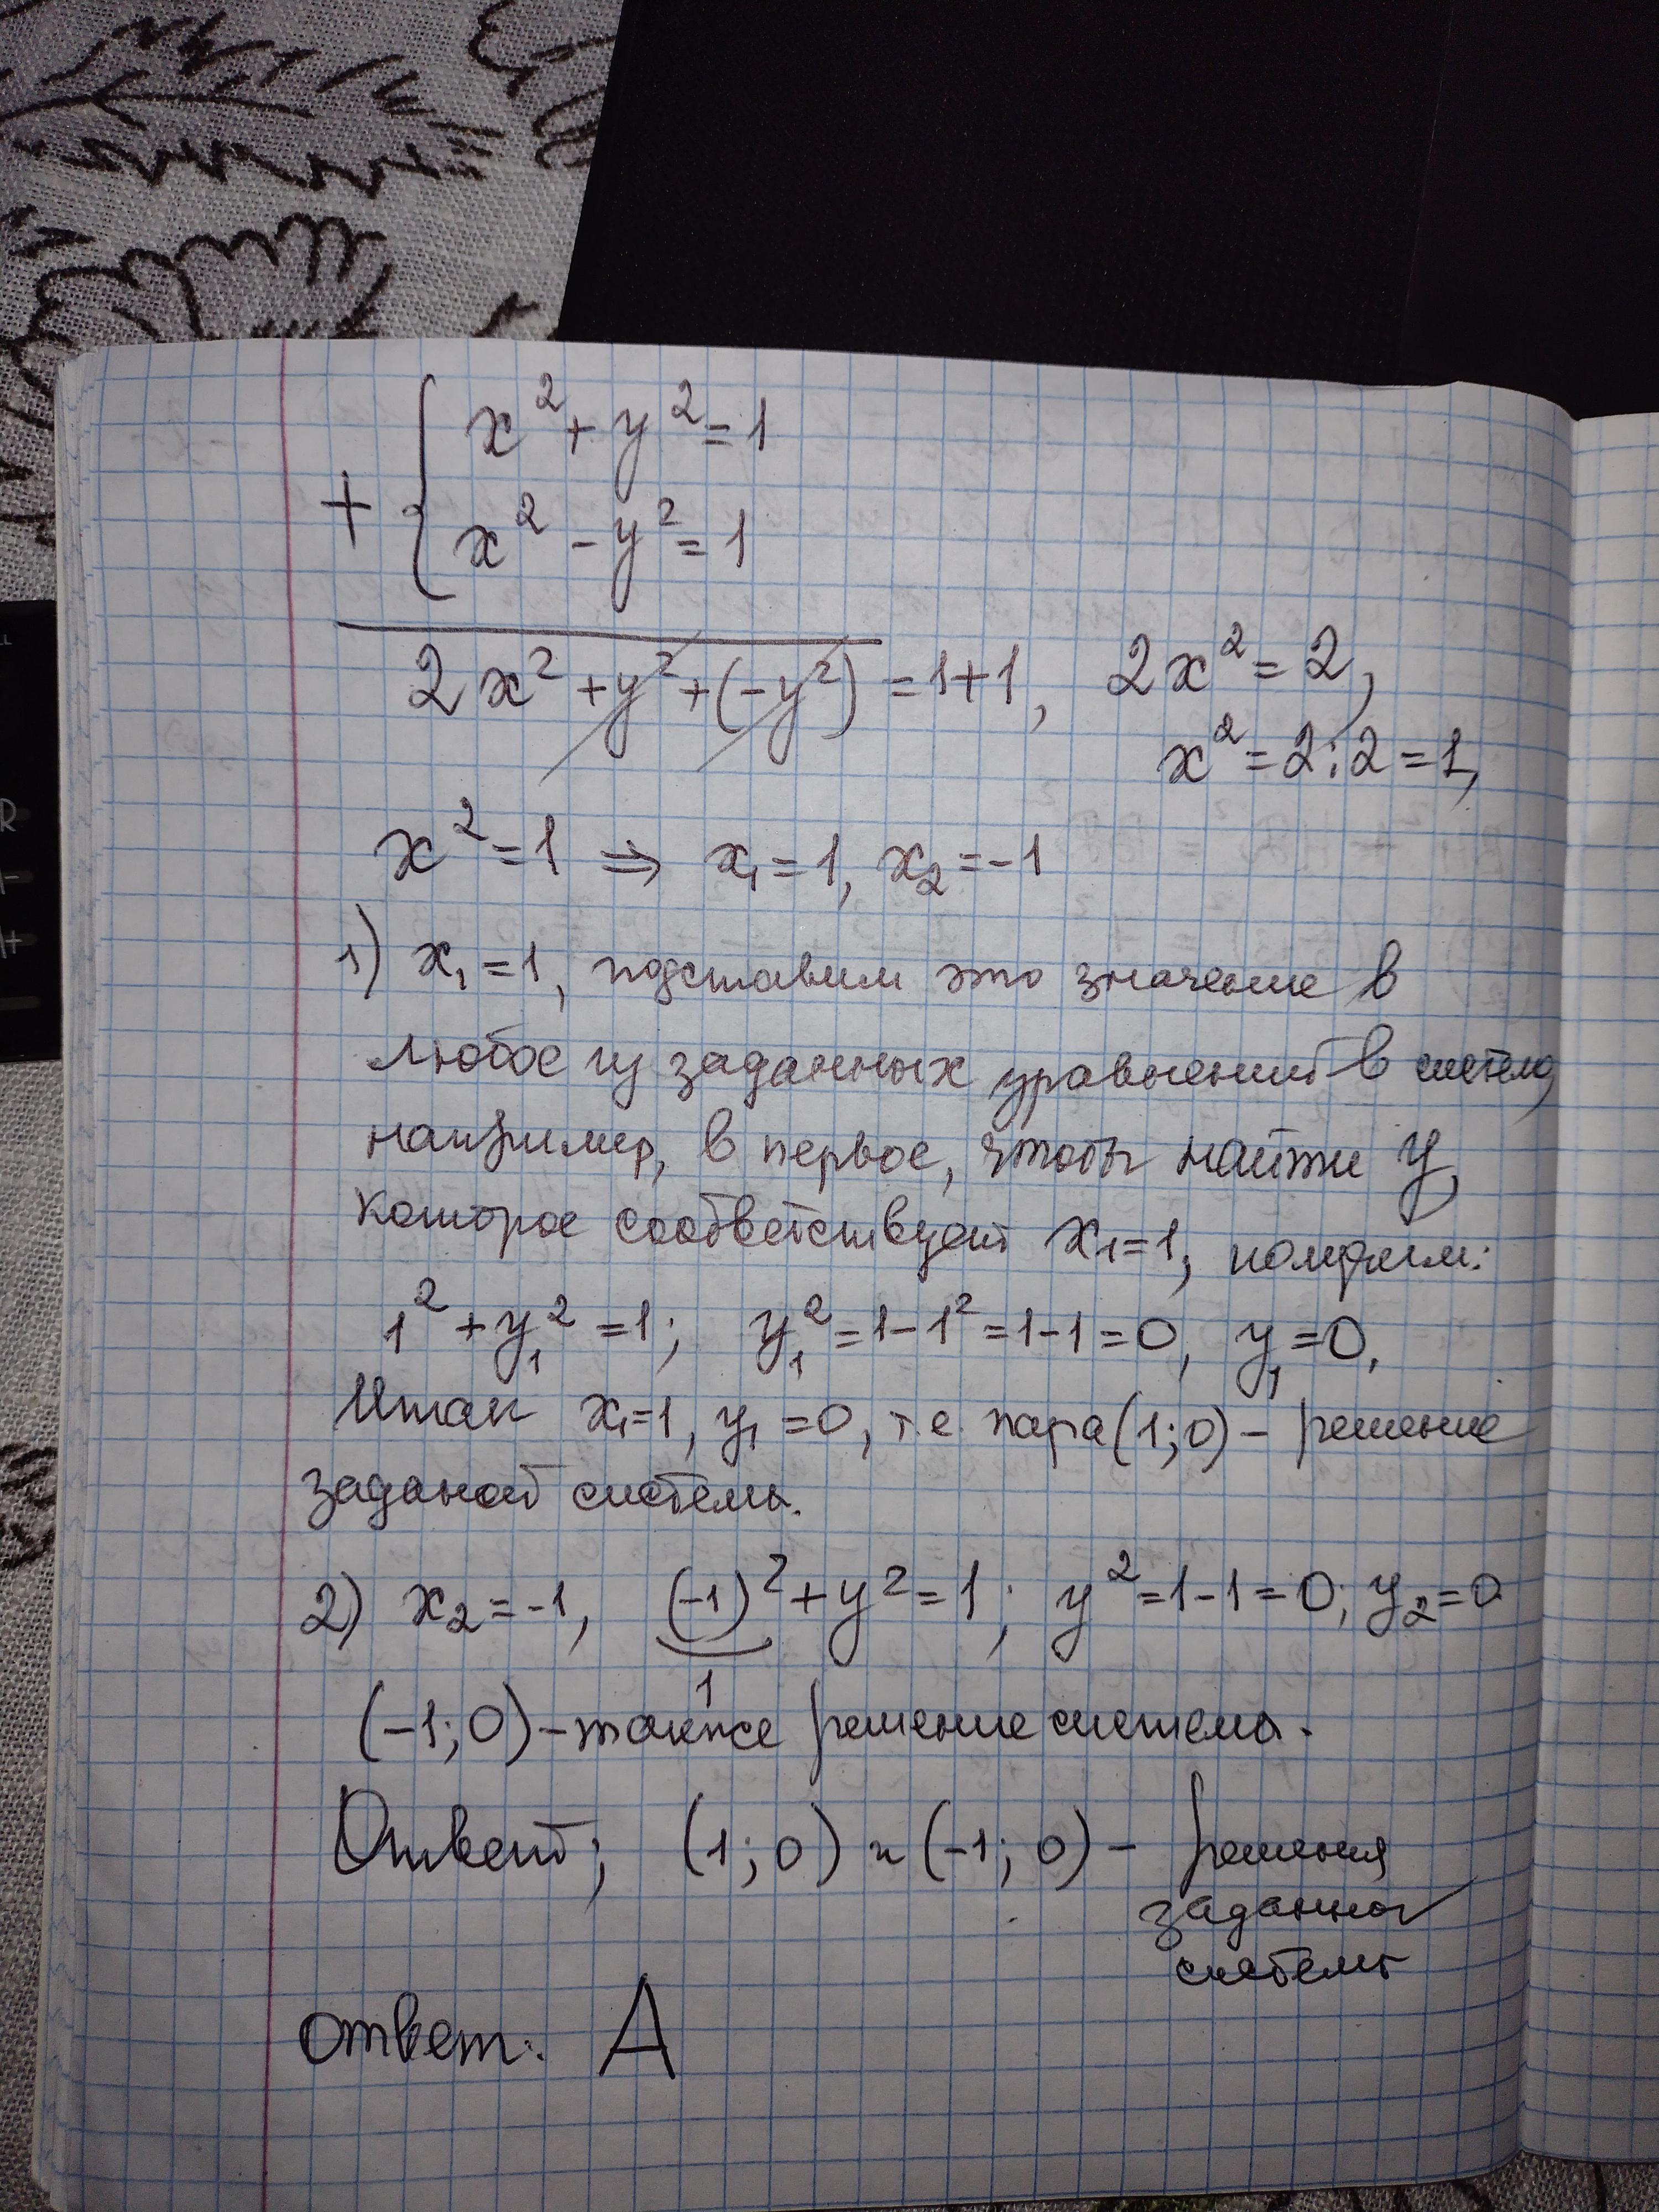 x² + y² = 1
+ { x² - y² = 1
2x² + y² + (-y²) = 1+1, 2x² = 2,
x² = 2:2 = 1,
x² = 1 ⇒ x₁ = 1, x₂ = -1
1) x₁ = 1, подставим это значение в
любое из заданных уравнений в систему,
например, в первое, чтобы найти y,
которое соответствует x₁=1, получим:
1² + y₁² = 1; y₁² = 1-1² = 1-1 = 0, y₁ = 0,
Итак x₁=1, y₁=0, т.е. пара (1;0) - решение
заданой системы.
2) x₂ = -1, (-1)² + y² = 1; y² = 1-1 = 0; y₂ = 0
1
(-1;0) - также решение системы.
Ответ; (1;0) и (-1;0) - решения
заданной
системы
ответ: А